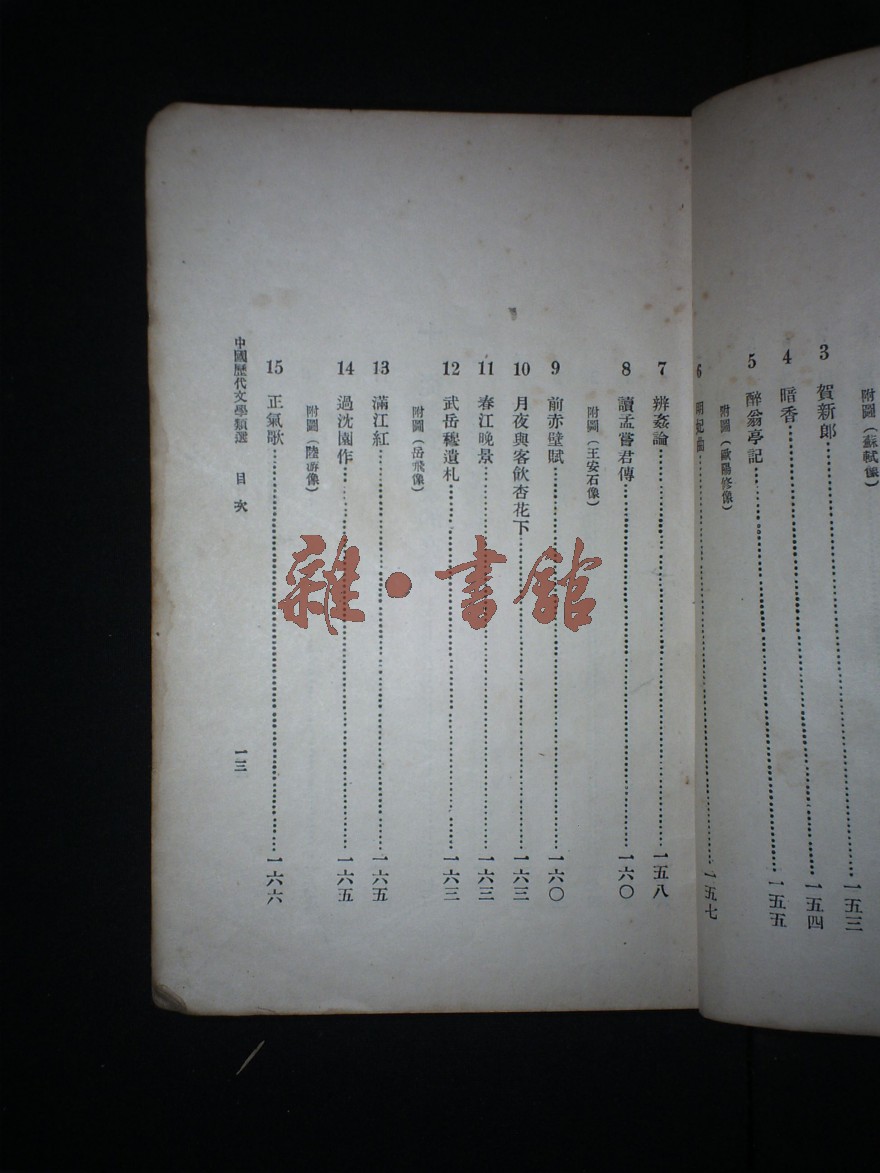 附圖(蘇軾像)
3 賀新郎……一五三
4 暗香……一五四
5 醉翁亭記……一五五
附圖(歐陽修像)
6 明妃曲……一五七
7 辨姦論……一五八
8 讀孟嘗君傳……一六〇
附圖(王安石像)
9 前赤壁賦……一六〇
10 月夜與客飲杏花下……一六三
11 春江晚景……一六三
12 武岳穆遺札……一六三
附圖(岳飛像)
13 滿江紅……一六五
14 過沈園作……一六五
附圖(陸游像)
15 正氣歌……一六六
中國歷代文學類選 目次 一三
雜·書館